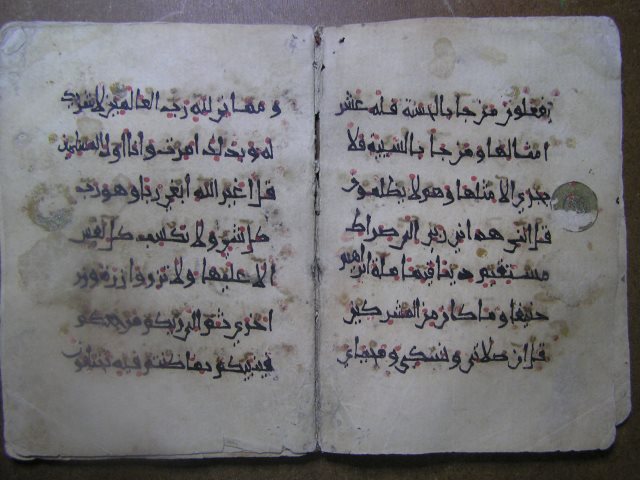 يفعلون من جا بالحسنة فله عشر
امثالها و من جا بالسيية فلا
يجزي الا مثلها و هم لا يظلمون
قل انني هداني ربي الى صراط
مستقيم دينا قيما ملة ابرهيم
حنيفا و ما كان من المشركين
قل ان صلاتي و نسكي و محياي
و مماتي لله رب العالمين لا شريك
له و بذلك امرت و انا اول المسلمين
قل اغير الله ابغي ربا و هو رب
كل شي و لا تكسب كل نفس
الا عليها و لا تزر وازرة وزر
اخرى ثم الى ربكم مرجعكم
فينبيكم بما كنتم فيه تختلفون